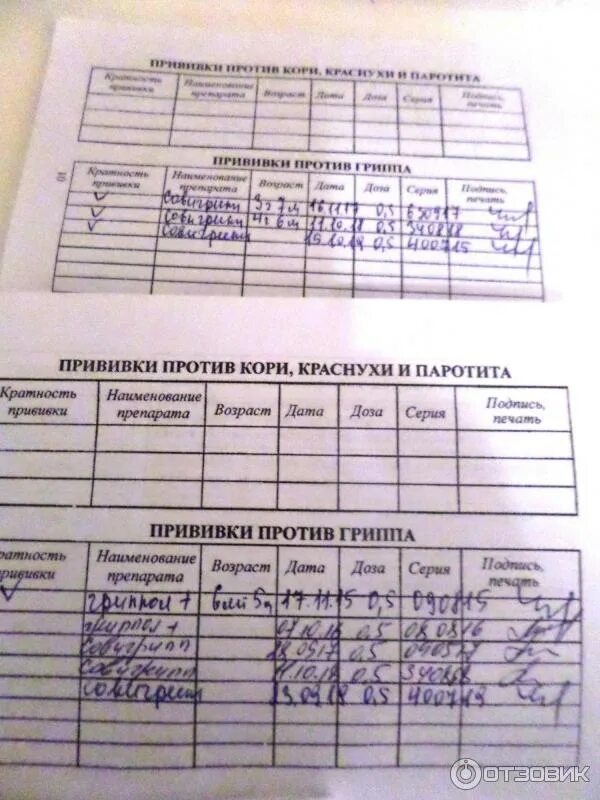 ПРИВИВКИ ПРОТИВ КОРИ, КРАСНУХИ И ПАРОТИТА
Кратность прививки Наименование препарата Возраст Дата Доза Серия Подпись, печать
10
ПРИВИВКИ ПРОТИВ ГРИППА
Кратность прививки Наименование препарата Возраст Дата Доза Серия Подпись, печать
Совигрипп 3г 7м 16.11.17 0,5
Совигрипп 4г 6м 11.10.18 0.5 340818
Совигрипп 0,5 400715
ПРИВИВКИ ПРОТИВ КОРИ, КРАСНУХИ И ПАРОТИТА
Кратность прививки Наименование препарата Возраст Дата Доза Серия Подпись, печать
ПРИВИВКИ ПРОТИВ ГРИППА
кратность прививки Наименование препарата Возраст Дата Доза Серия Подпись, печать
гриппол + 17.11.15 0,5 090815
гриппол + 07.10.16 0.5
Совигрипп 0.5
Совигрипп 0.5
Совигрипп 0,5
ОТЗОВИК